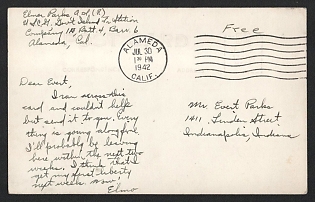 Elmer Parks
U.S.C.G. Gov't Island Tr. Station
Company 1 Batt 4, Barr. 6
Alameda, Cal.
Free
ALAMEDA
JUL 30
1 PM
1942
CALIF.
Dear Evert,
I ran across this
card and couldn't help
but send it to you. Every
thing is going along fine
I'll probably be leaving
here within the next two
weeks. I think I'll
get my first liberty
next week.
Elmo
Mr Evert Parks
1411 Linden Street
Indianapolis, Indiana